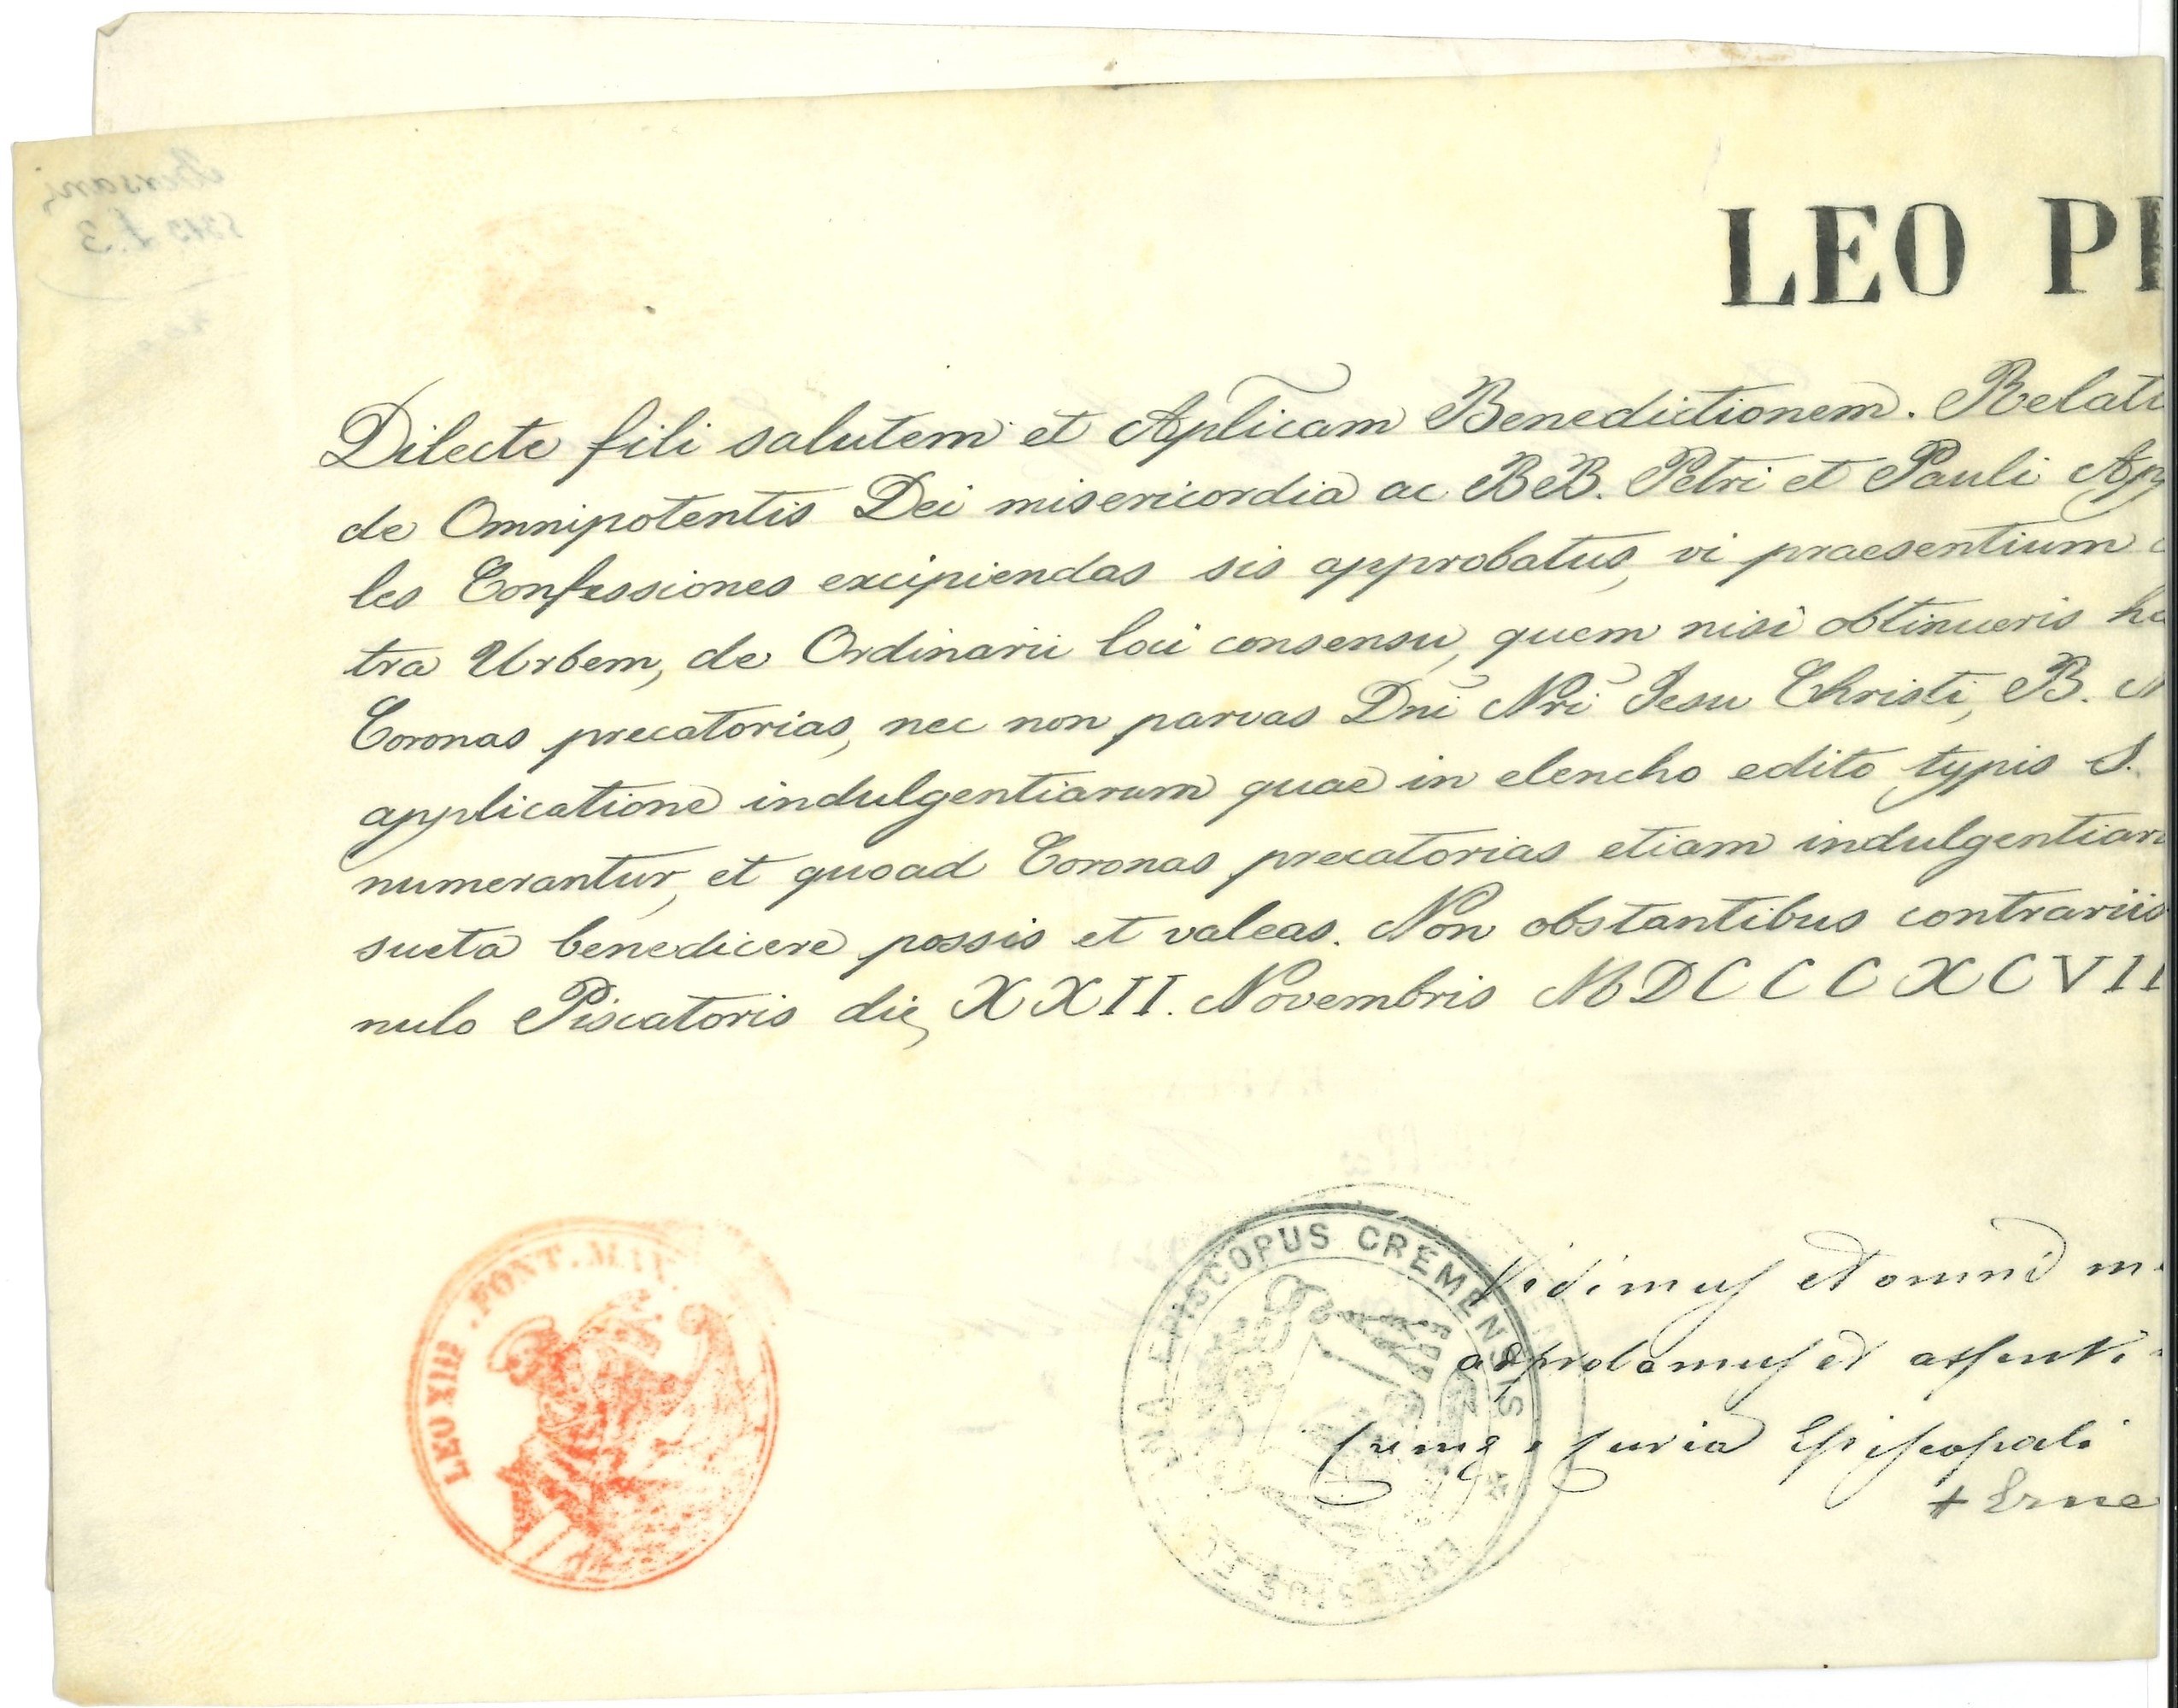 LEO P
Dilecte fili salutem et Aplicam Benedictionem. Relati
de Omnipotentis Dei misericordia ac BB. Petri et Pauli Ap
les Confessiones excipiendas sis approbatus, vi praesentium
tra Urbem, de Ordinarii loci consensu, quem nisi obtinueris ha
Coronas precatorias, nec non parvas Dni Nri Jesu Christi, B. M
applicatione indulgentiarum quae in elencho edito typis S.
numerantur, et quoad Coronas precatorias etiam indulgentiaru
sueta benedicere possis et valeas. Non obstantibus contrariis
nulo Piscatoris die, XXII. Novembris MDCCCXCVII
LEO XIII. PONT. MAX.
EPISCOPUS CREMENSIS
ERNESTUS
Vidimus et omni m
adprobamus et assenti
Cremæ, Curia Episcopali
+ Erne